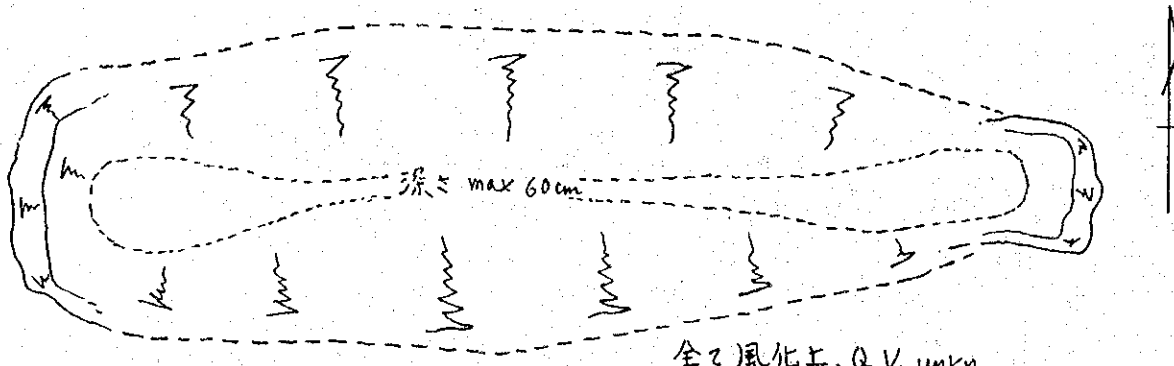 深さ max 60cm
全て風化土、Q.V. unkn